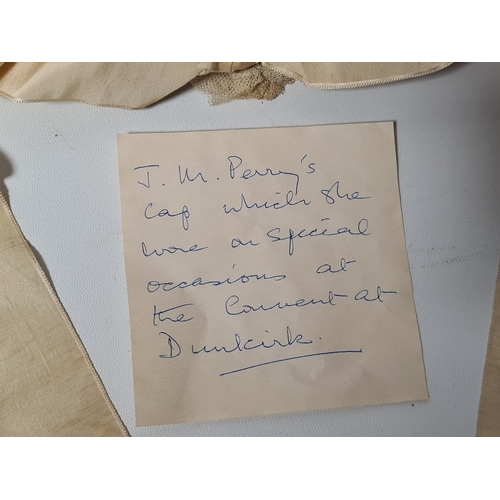 J. M. Perry's
Cap which She
wore on Special
occasions at
the Convent at
Dunkirk.